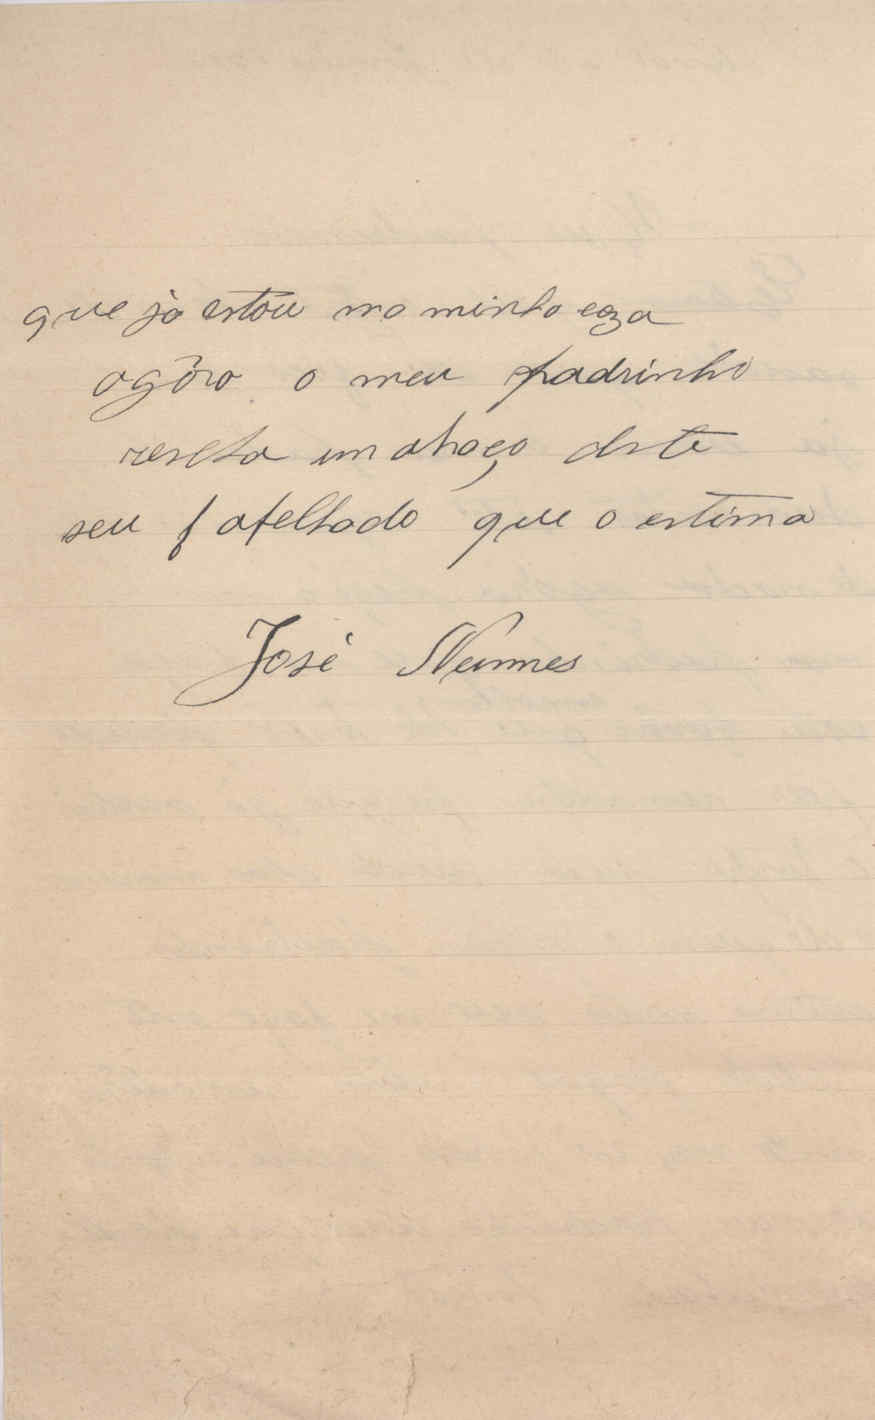 que ja estou na minha caza
agóra o meu padrinho
reseba um abraço deste
seu f afelhado que o estima
José Nunnes